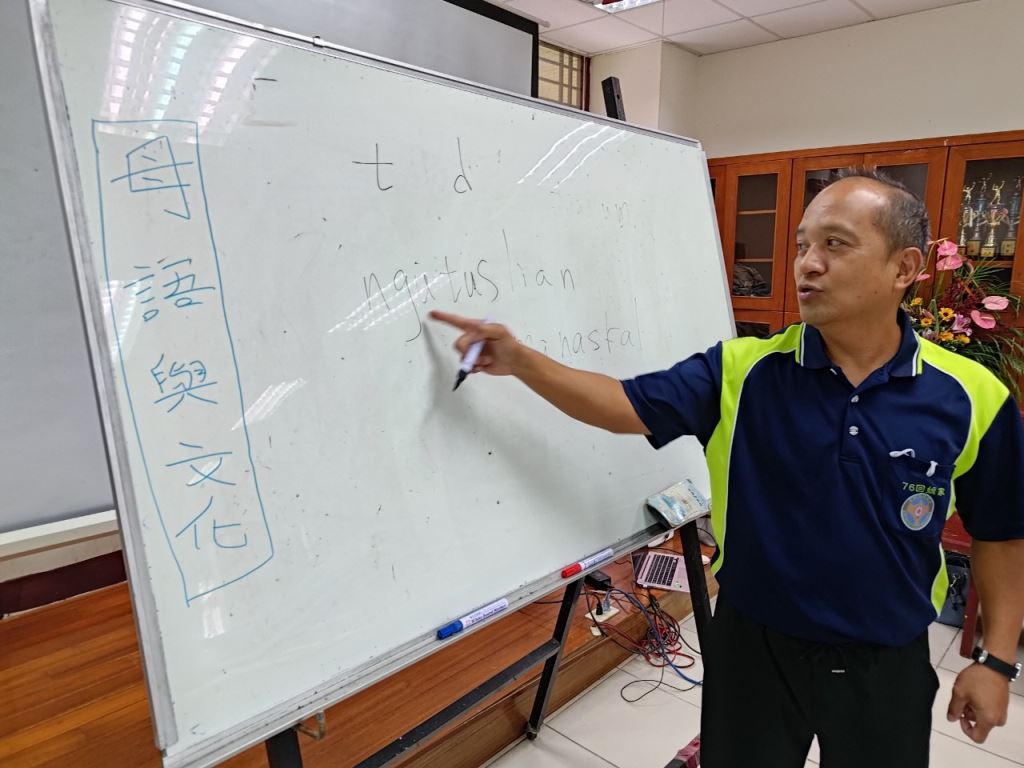 母語與文化
t d
un
ngituslian
nastal
76回娘家